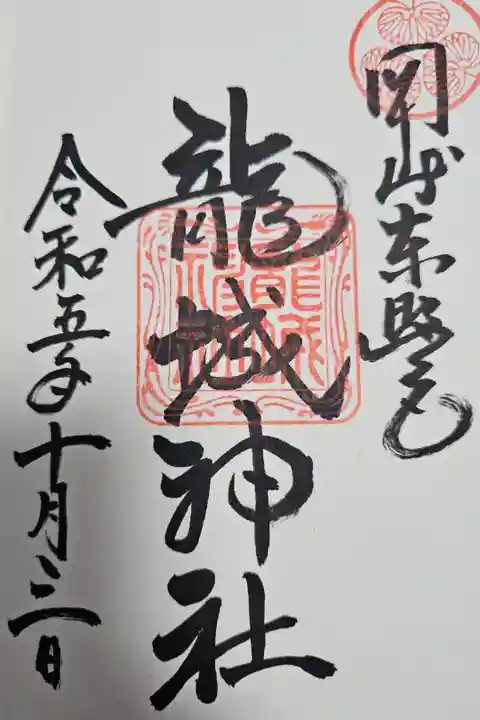 岡崎東照宮
龍城神社
令和五年十月三日
龍城
神社